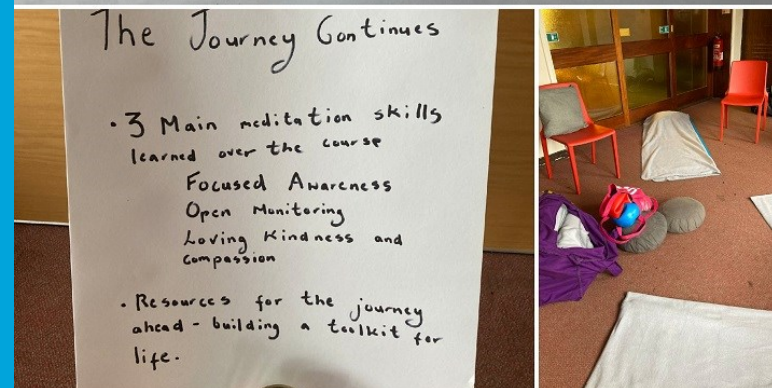 The Journey Continues
• 3 Main meditation skills
learned over the course
Focused Awareness
Open Monitoring
Loving Kindness and
Compassion
• Resources for the journey
ahead - building a toolkit for
life.